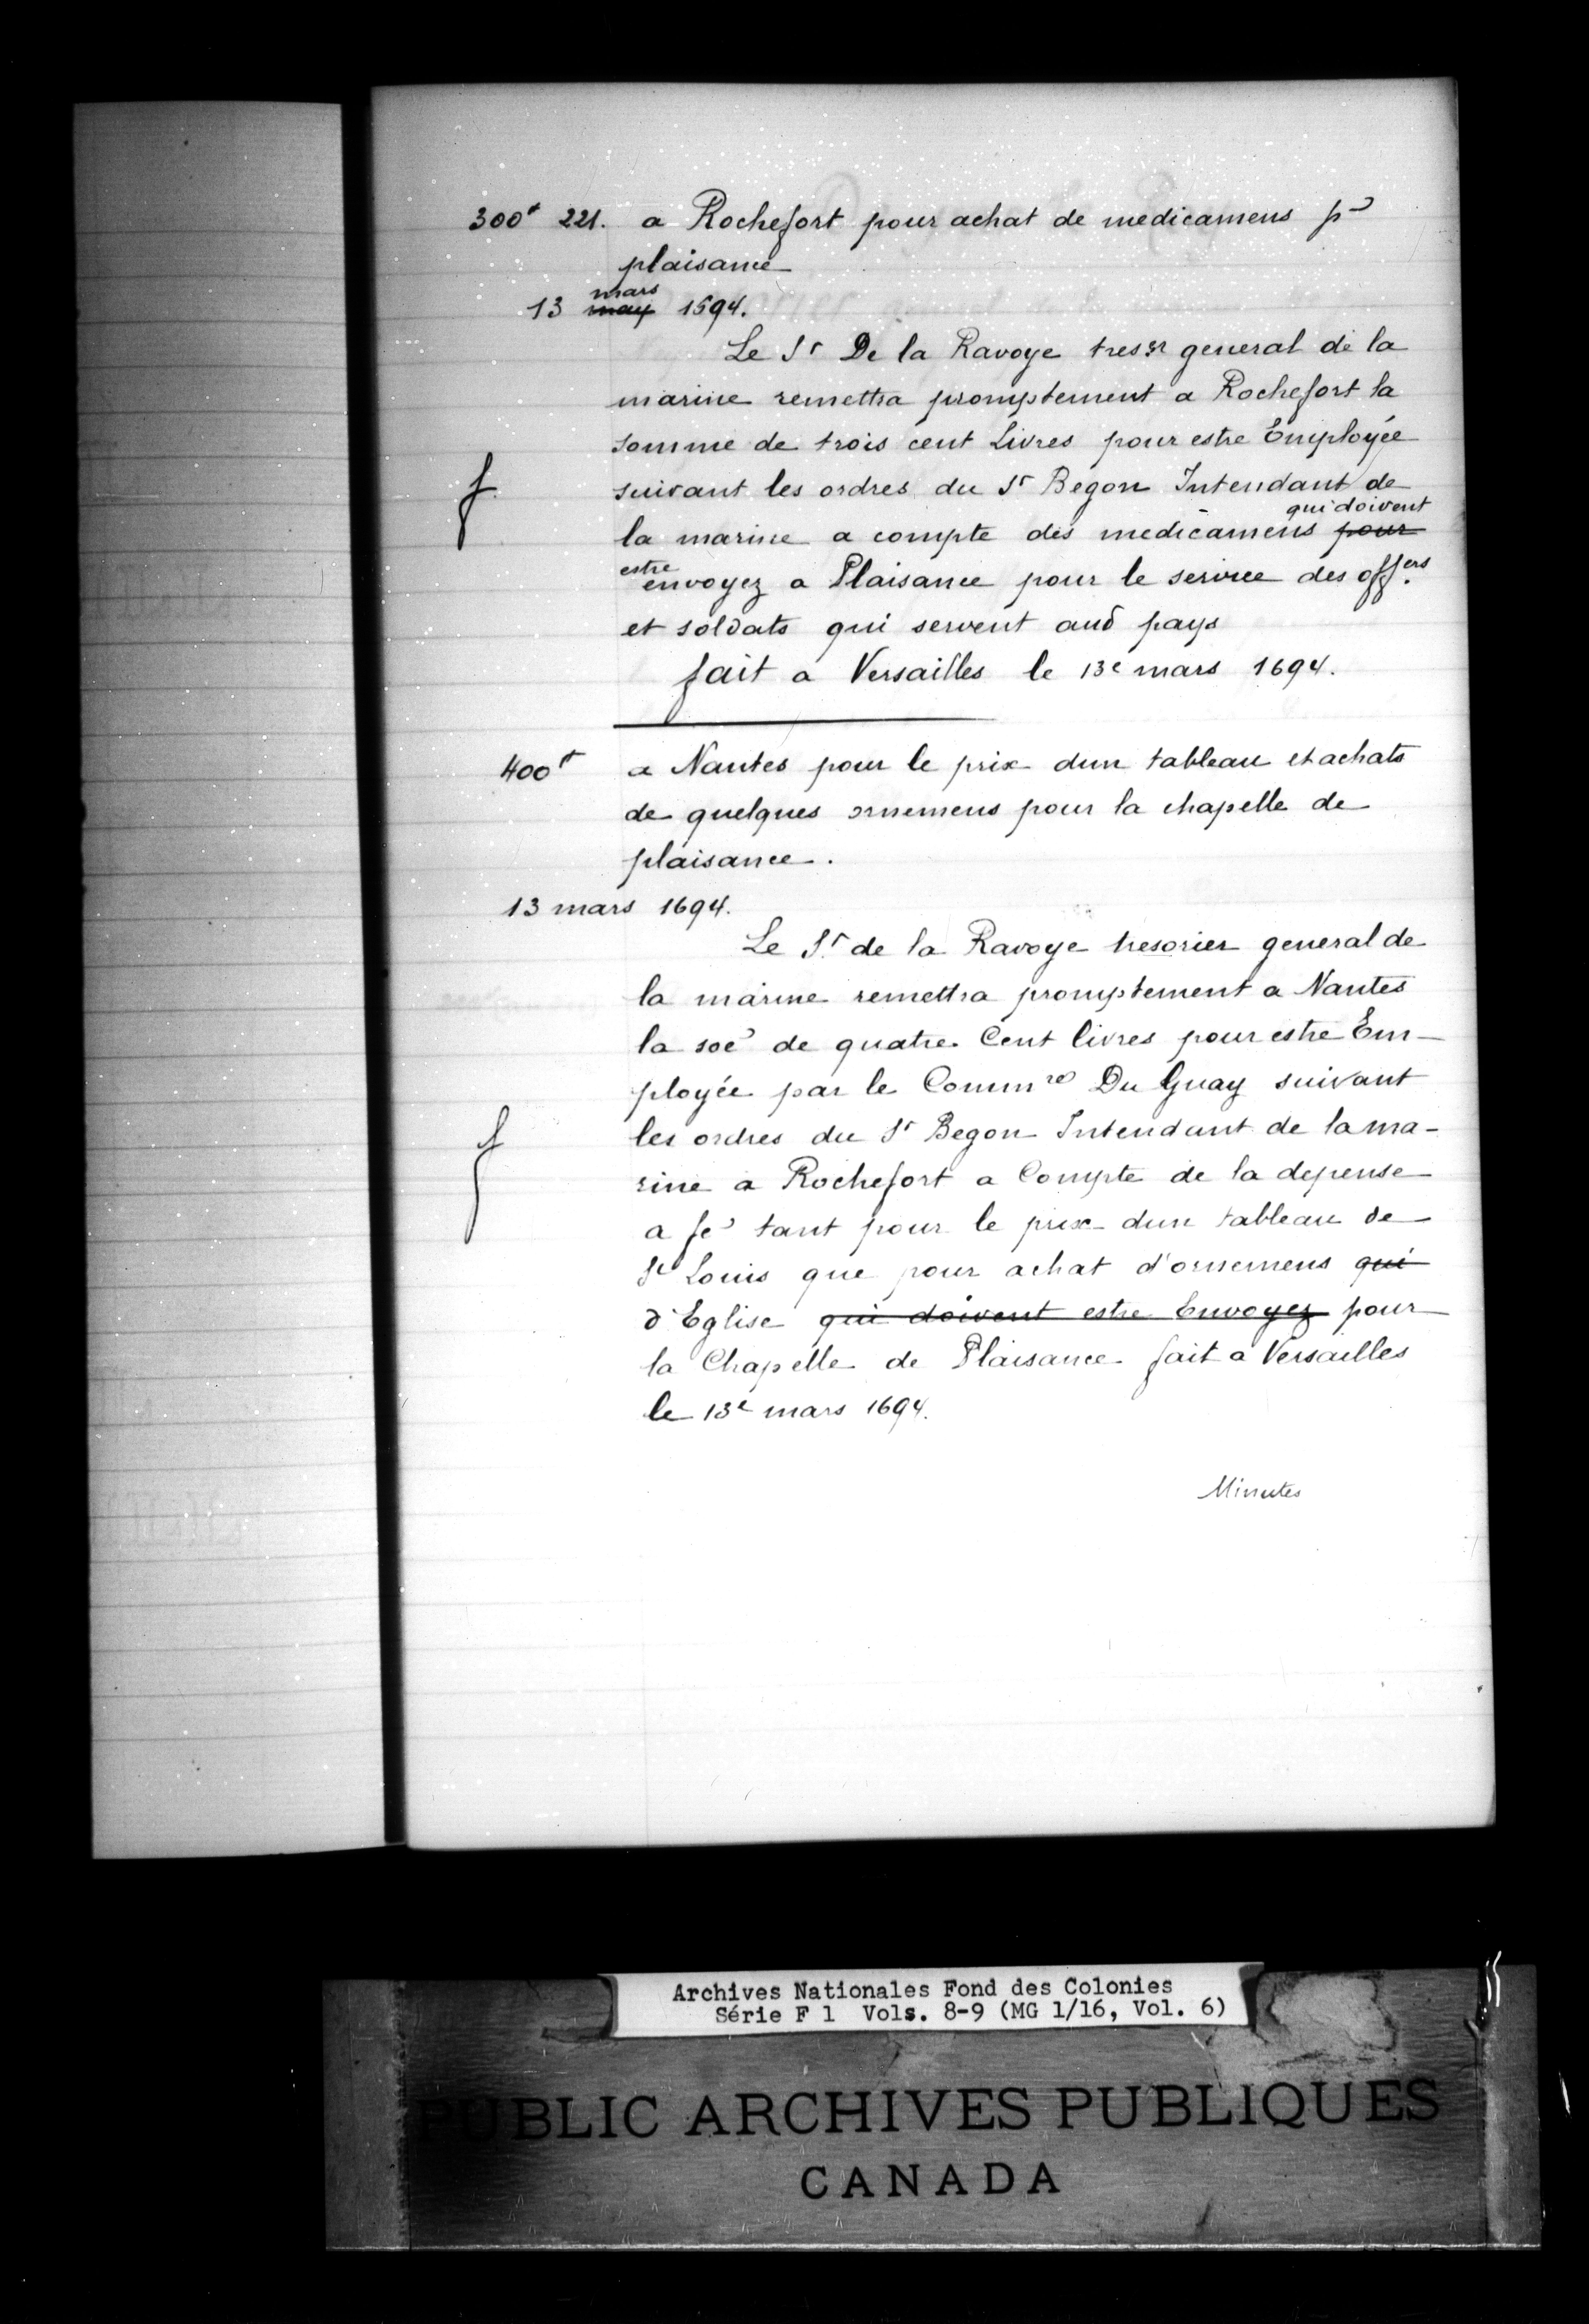 300# 221. a Rochefort pour achat de medicamens p^r
plaisance
mars
13 ~~may~~ 1594.
Le Sr De la Ravoye tresr general de la
marine remettra promptement a Rochefort la
somme de trois cent Livres pour estre Employée
f suivant les ordres du Sr Begon Intendant de
qui doivent
la marine a compte des medicamens ~~pour~~
estre
envoyez a Plaisance pour le service des offers.
et soldats qui servent aud pays
fait a Versailles le 13e mars 1694.
400# a Nantes pour le prix dun tableau et achats
de quelques ornemens pour la chapelle de
plaisance.
13 mars 1694.
Le Sr. de la Ravoye tresorier general de
la marine remettra promptement a Nantes
la soe de quatre Cent livres pour estre Em-
ployée par le Commre Du Guay suivant
f les ordres du Sr Begon Intendant de la ma-
rine a Rochefort a Compte de la depense
a fe tant pour le prix dun tableau de
St Louis que pour achat d'ornemens ~~qui~~
d'Eglise ~~qui doivent estre Envoyez~~ pour
la Chapelle de Plaisance fait a Versailles
le 13e mars 1694.
Minutes
Archives Nationales Fond des Colonies
Série F 1 Vols. 8-9 (MG 1/16, Vol. 6)
PUBLIC ARCHIVES PUBLIQUES
CANADA